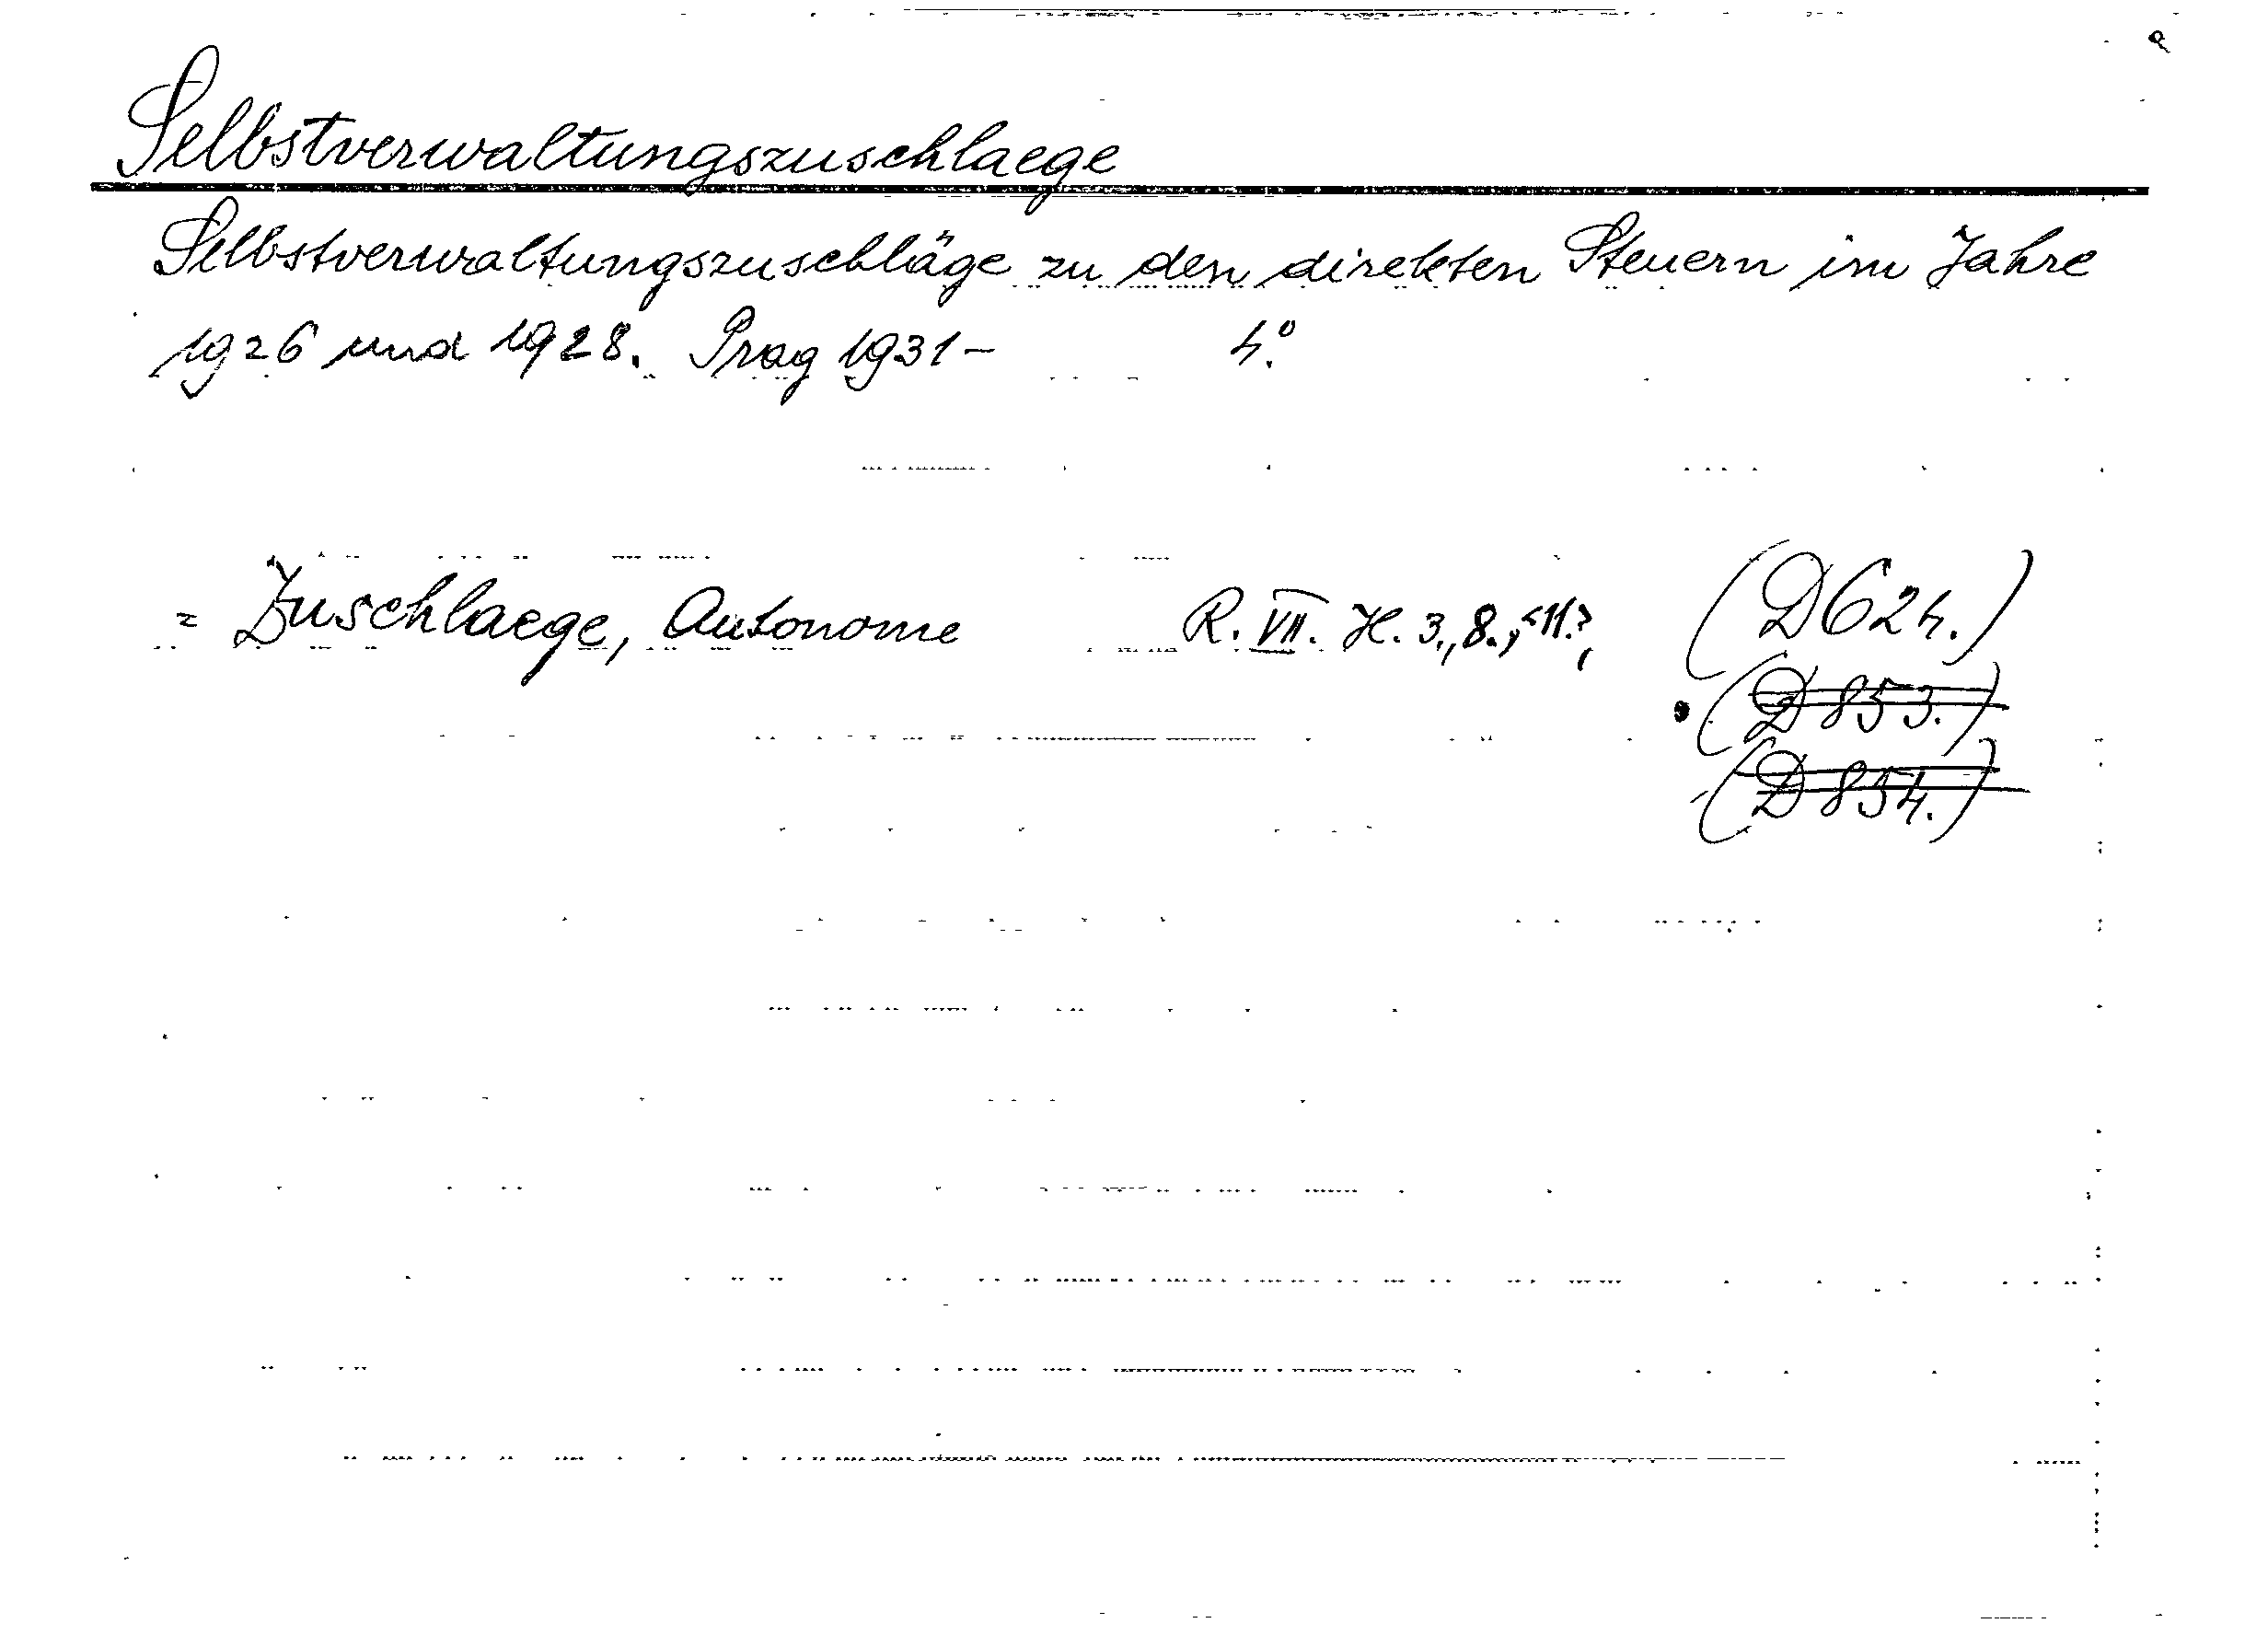 Selbstverwaltungszuschlaege
Selbstverwaltungszuschläge zu den direkten Steuern im Jahre
1926 und 1928. Prag 1931- 4.º
= Zuschlaege, Autonome R. VII. H. 3., 8., (D624.)
(D853.)
(D854.)